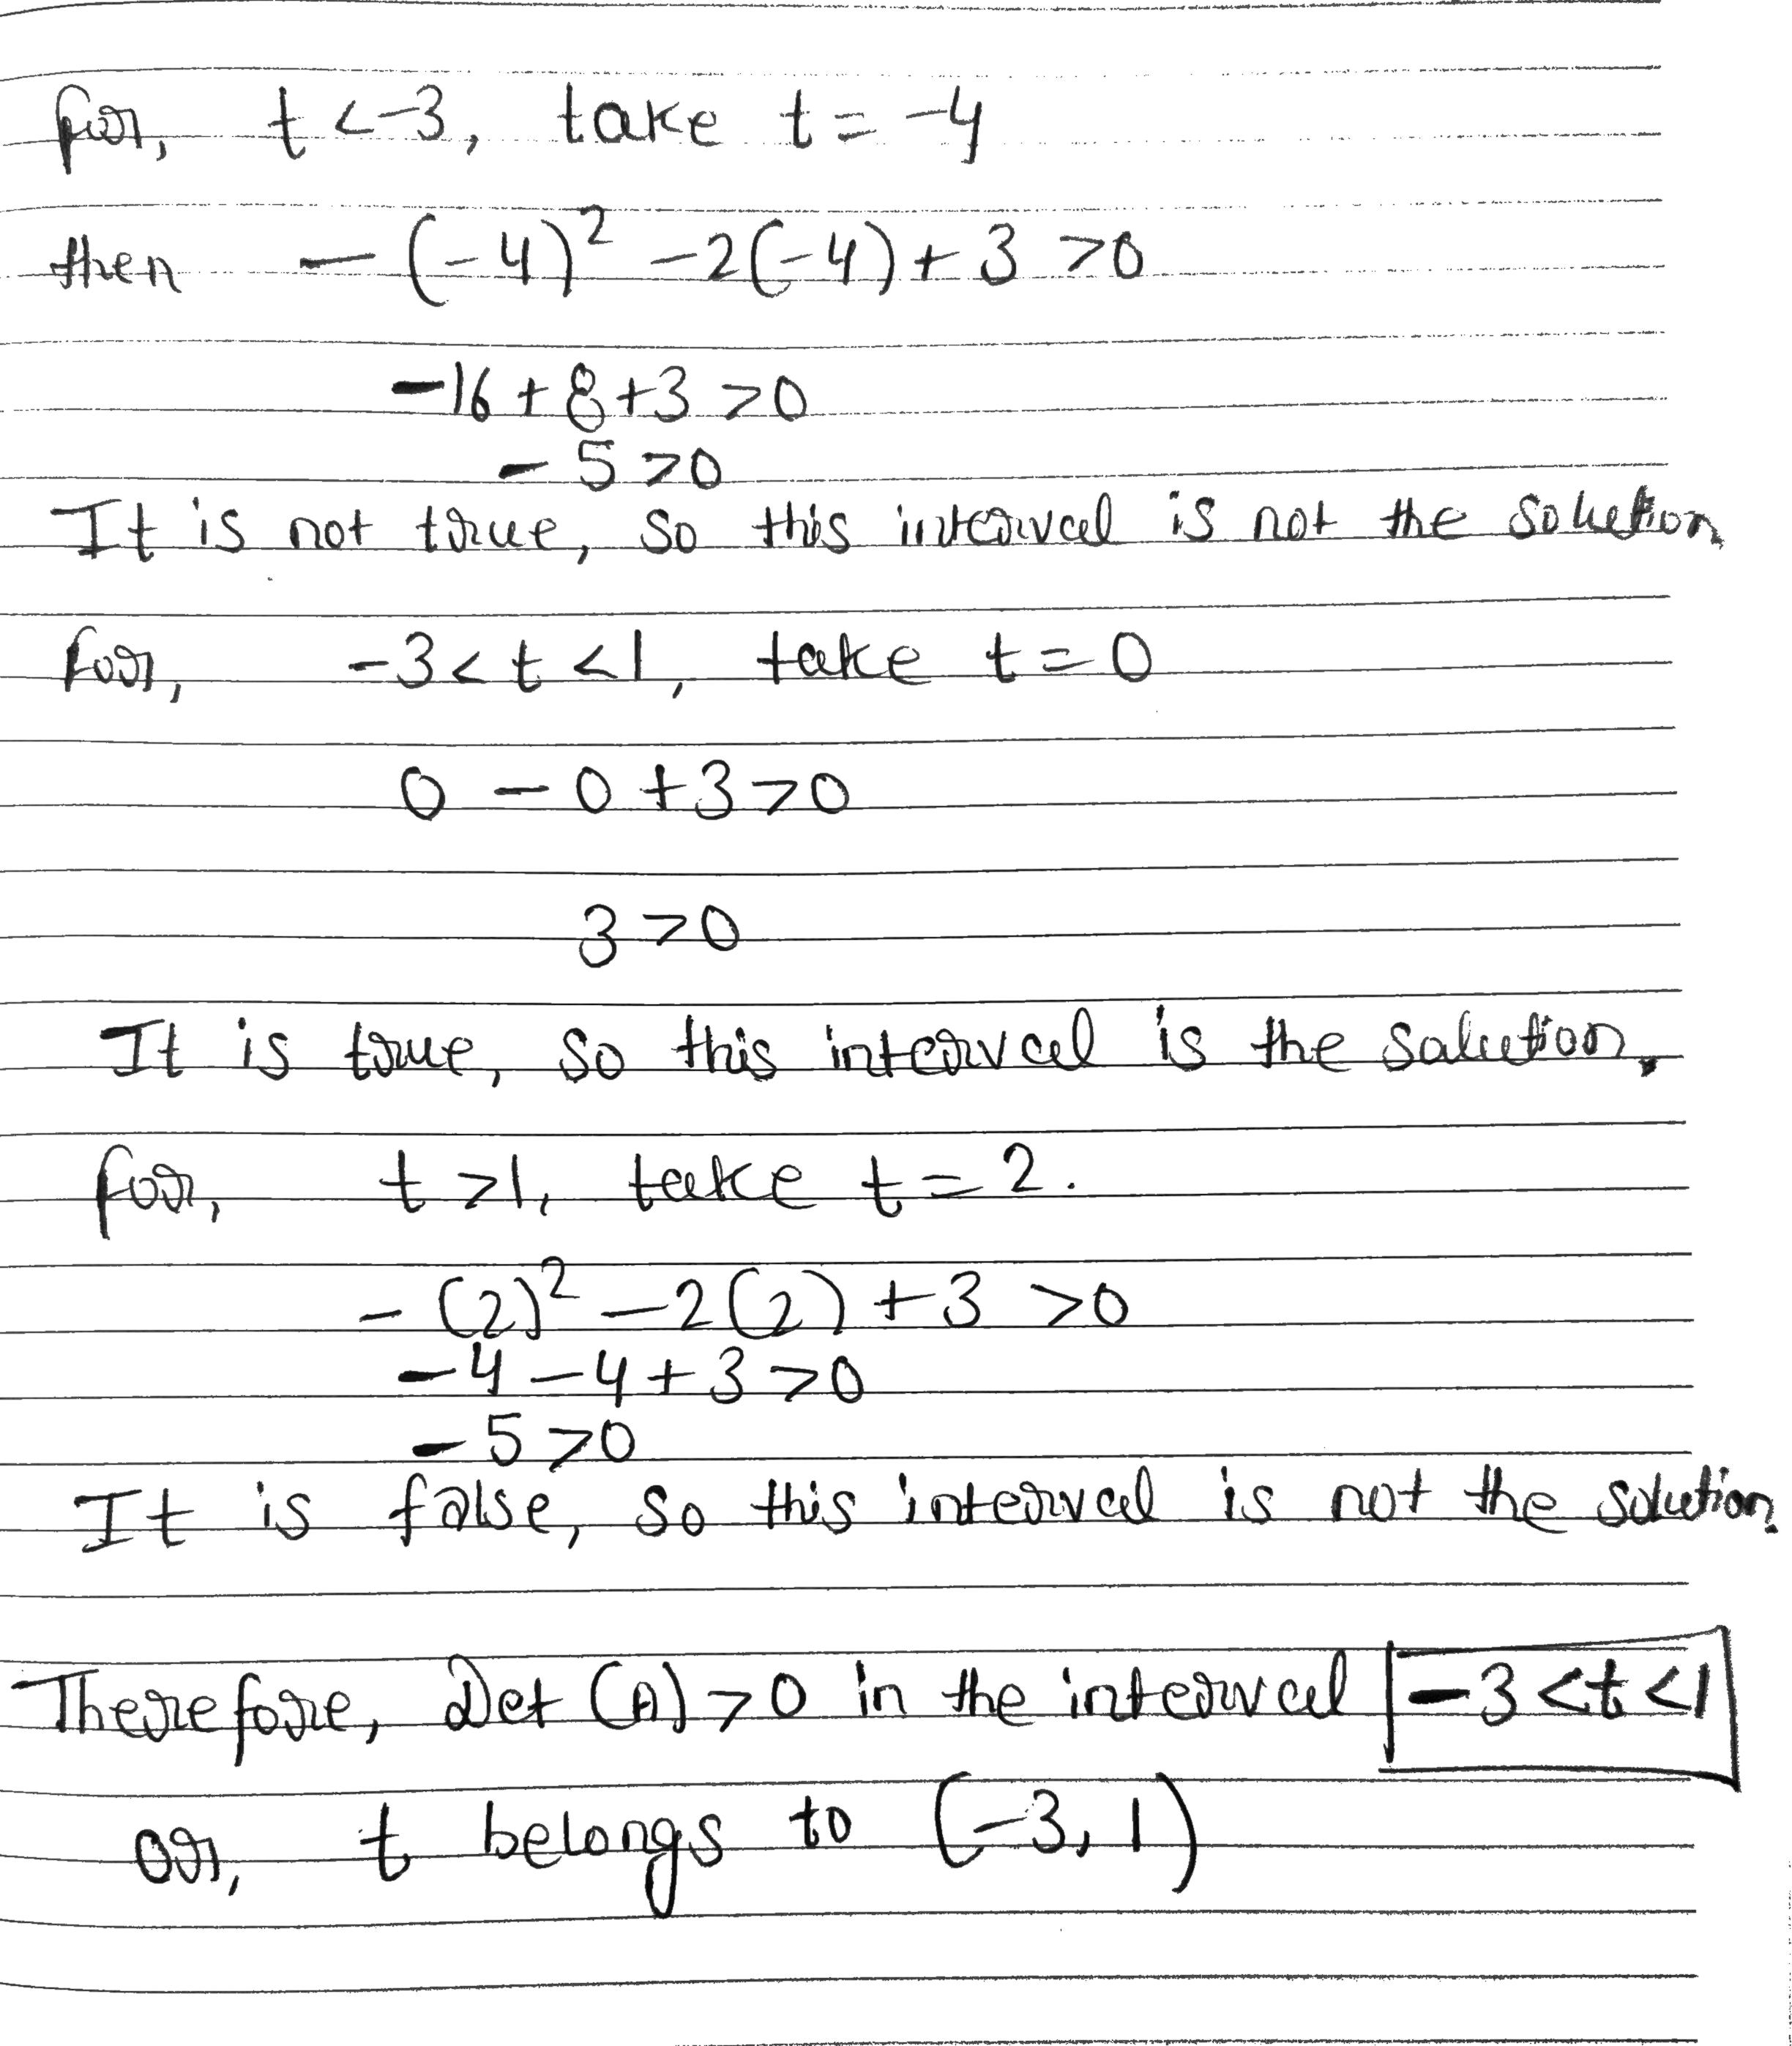 for, t < -3, take t = -4
then - (-4)² - 2(-4) + 3 > 0
-16 + 8 + 3 > 0
- 5 > 0
It is not true, so this interval is not the solution
for, -3 < t < 1, take t = 0
0 - 0 + 3 > 0
3 > 0
It is true, so this interval is the solution.
for, t > 1, take t = 2.
- (2)² - 2(2) + 3 > 0
-4 - 4 + 3 > 0
- 5 > 0
It is false, so this interval is not the solution.
Therefore, Det (A) > 0 in the interval -3 < t < 1
or, t belongs to (-3, 1)